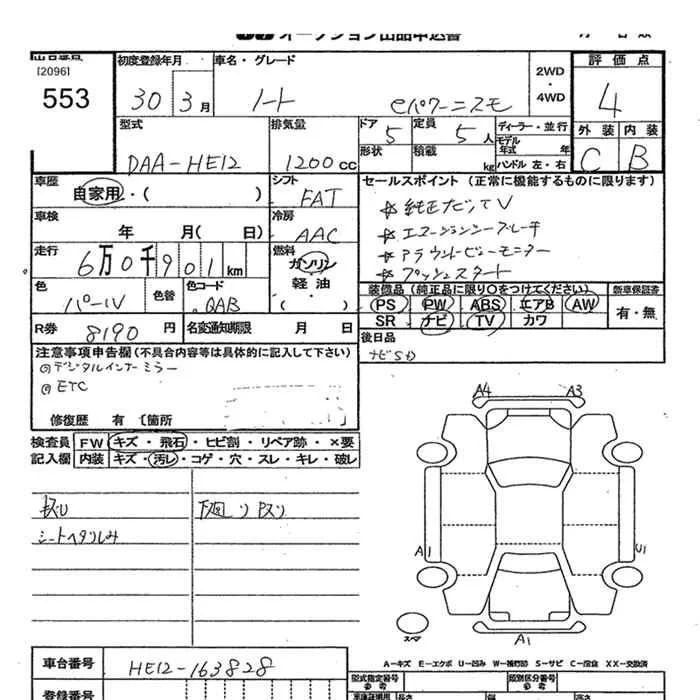 オークション出品申込書
[2096]
553
初度登録年月
30 3月
車名・グレード
ノート eパワーニスモ
2WD
・
4WD
評価点
4
外装 内装
C B
型式
DAA-HE12
排気量
1200cc
ドア 5
定員 5人
形状
積載 kg
ディーラー・並行
モデル年式 年
ハンドル 左・右
車歴
自家用・( )
シフト
FAT
セールスポイント (正常に機能するものに限ります)
☆純正ナビTV
☆エマージェンシーブレーキ
☆アラウンドビューモニター
☆プッシュスタート
車検
年 月( 日)
冷房
AAC
走行
6万0千901km
燃料
ガソリン
軽油
・( )
色
パール
色替
色コード
QAB
装備品 (純正品に限り○をつけてください)
PS PW ABS エアB AW
SR ナビ TV カワ
新車保証書
有・無
R券
8190円
名変通知期限 月 日
後日品
注意事項申告欄(不具合内容等は具体的に記入して下さい)
◎デジタルインナーミラー
◎ETC
修復歴 有 〔箇所
検査員記入欄
FW キズ・飛石・ヒビ割・リペア跡・×要
内装 キズ・汚レ・コゲ・穴・スレ・キレ・破レ
A4 A3
シートヘタリしみ
A1 U1
A1
A-キズ E-エクボ U-凹み W-補修跡 S-サビ C-腐食 XX-交換済
車台番号
HE12-163828
型式指定番号
参考
類別区分番号
参考
登録番号